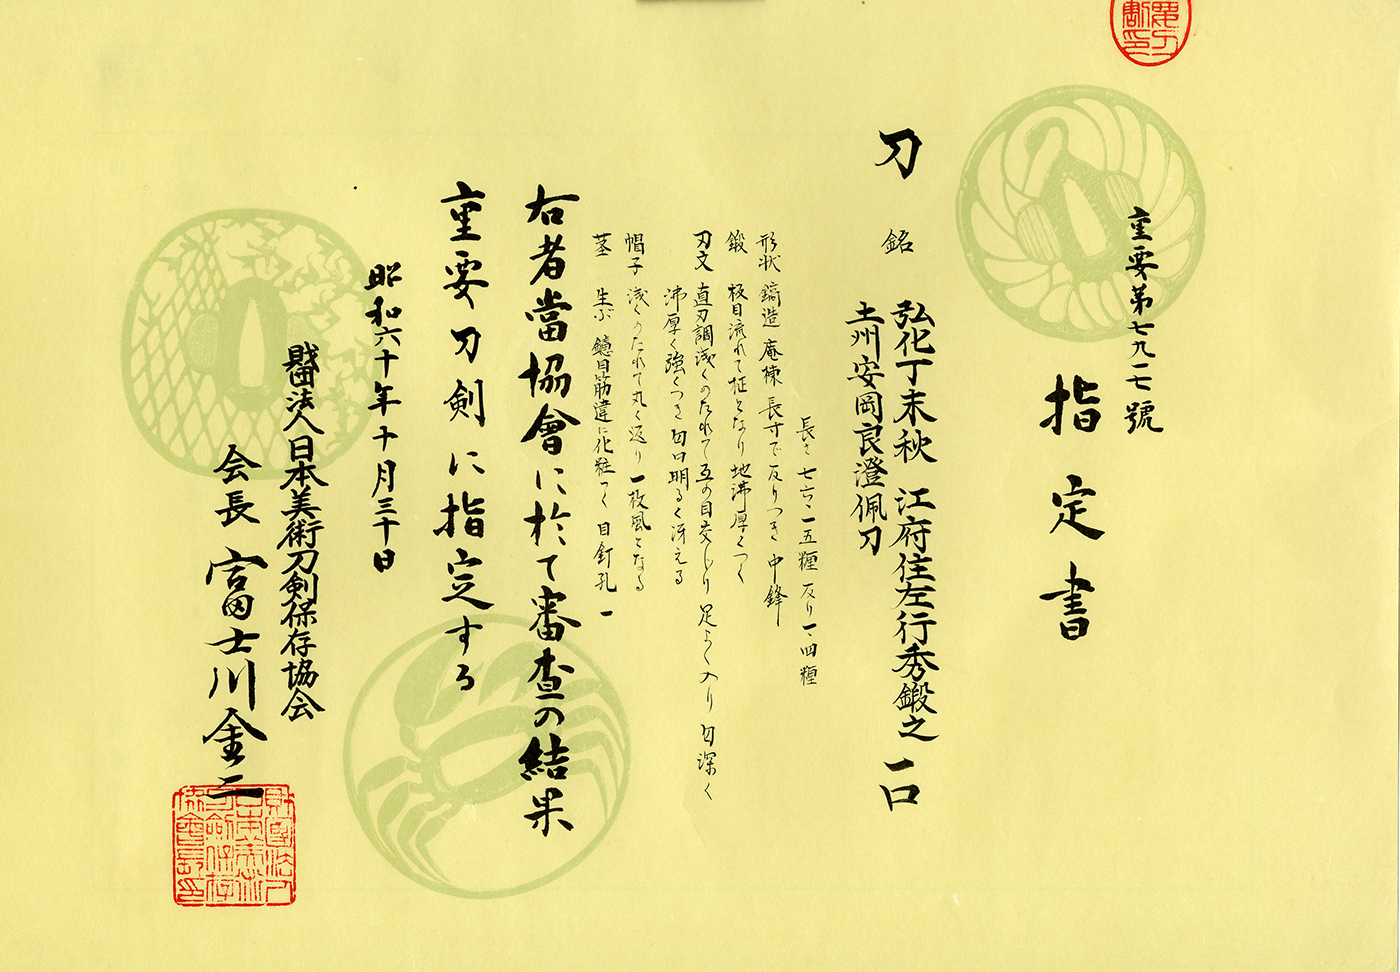 重要第七九一七號
指定書
刀 銘 弘化丁未秋 江府住左行秀鍛之 一口
土州安岡良澄佩刀
長さ 七六・一五糎 反り 一・四糎
形状 鎬造 庵棟 長寸で 反りつき 中鋒
鍛 板目流れて柾となり 地沸厚くつく
刃文 直刃調浅くのたれて互の目交じり 足よく入り 匂深く
沸厚く強くつき 匂口明るく冴える
帽子 浅くのたれて丸く返り 一枚風となる
茎 生ぶ 鑢目筋違に化粧つく 目釘孔 一
右者當協會に於て審査の結果
重要刀剣に指定する
昭和六十年十月三十日
財団法人日本美術刀剣保存協会
会長 富士川金二